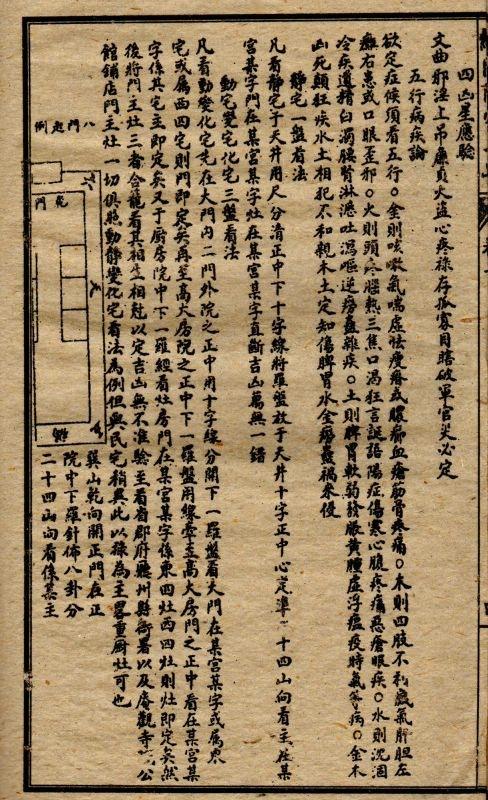 四凶星應驗
文曲邪淫上吊廉貞火盜心疼祿存孤寡目瞎破軍官災必定
五行病疾論
欲定症候須看五行○金則咳嗽氣喘虛怯瘦瘠或膿血瘡筋骨疼痛○木則四肢不利風氣肝胆左
癱右患或口眼歪邪○火則頭疼腦熱三焦口渴狂言譫語陽症傷寒心腹疼痛惡瘡眼疾○水則沉涸
冷疾遺精白濁腰腎淋瀝吐瀉嘔逆癆蠱雜疾○土則脾胃軟弱發脹黃腫虛浮瘟疫時氣等病○金木
凶死顛狂疾水土相犯不和親木土定知傷脾胃水金癆蠱禍來侵
靜宅一盤看法
凡看靜宅于天井用尺分清正中下十字線將羅盤放于天井十字正中心定準二十四山向看主在某
宮某字門在某宮某字灶在某宮某字直斷吉凶萬無一錯
動宅變宅化宅三盤看法
凡看動變化宅先在大門內二門外院之正中用十字線分開下一羅盤看大門在某宮某字或屬東
宅或屬西四宅則門即定矣再至高大房院之正中下一羅盤用線牽至高大房門之正中看在某宮某
字係某宅主即定矣又于厨房院中下一羅經看灶房門在某宮某字係東四灶西四灶則灶即定矣然
後將門主灶三者合龍看其相生相尅以定吉凶無不准驗至看省郡府廳州縣衙署以及庵觀寺公
館鋪店門主灶一切俱照動靜變化宅看法為例但與民宅稍異此以祿為主署重厨灶可也
八門起例
乾門
巽山乾向開正門在正
院中下羅針佈八卦分
二十四山向看係某主